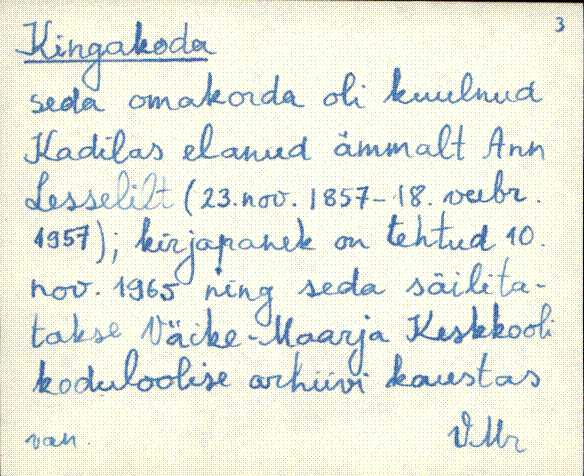 3
Kingakoda
seda omakorda oli kuulnud
Kadilas elanud ämmalt Ann
Lesselilt (23. nov. 1857 - 18. veebr.
1957); kirjapanek on tehtud 10.
nov. 1965 ning seda säilita-
takse Väike-Maarja Keskkooli
koduloolise arhiivi kaustas
van. VMr